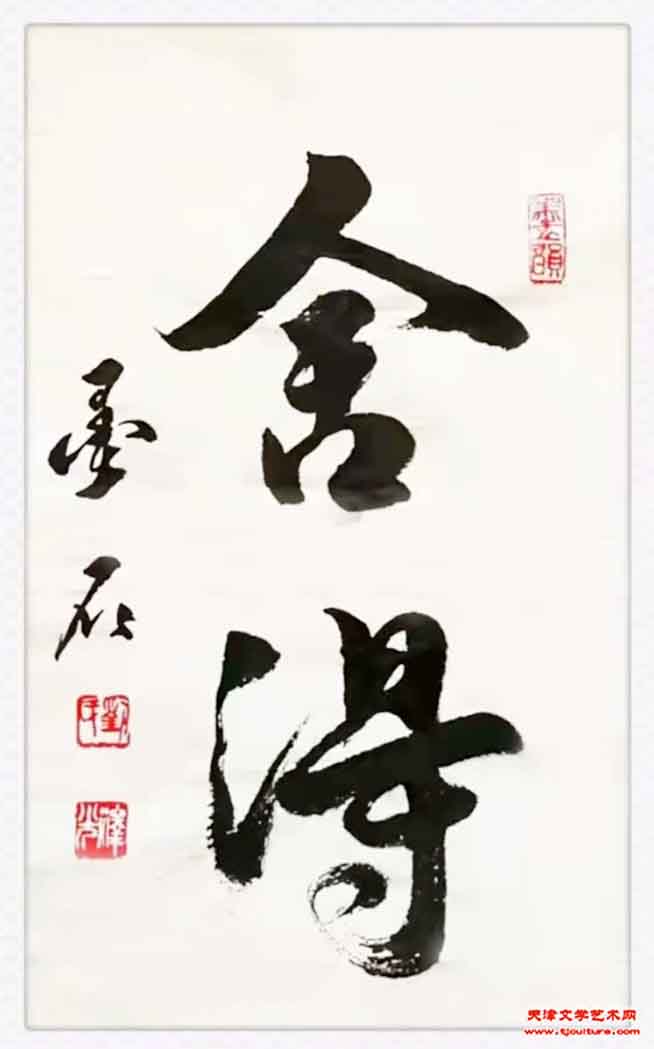 舍得
墨石
天津文学艺术网
www.tjculture.com